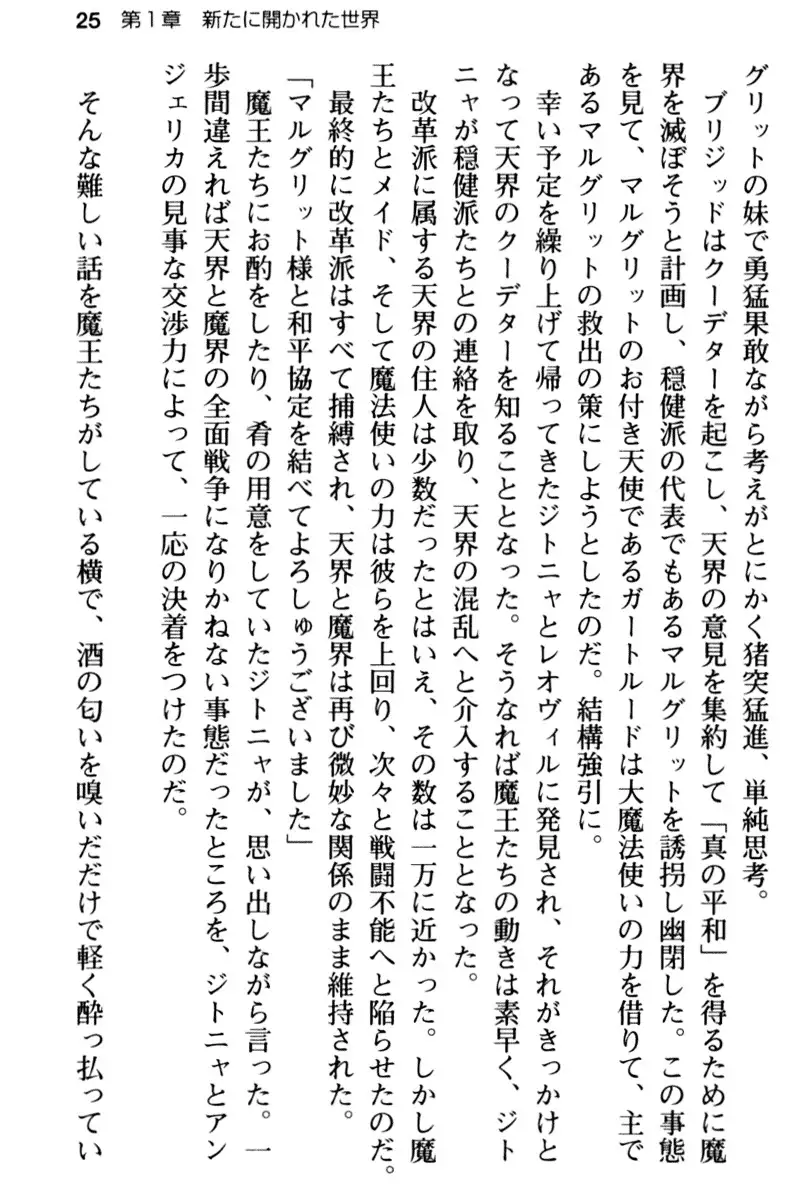 25 第1章 新たに開かれた世界
グリットの妹で勇猛果敢ながら考えがとにかく猪突猛進、単純思考。
ブリジッドはクーデターを起こし、天界の意見を集約して「真の平和」を得るために魔
界を滅ぼそうと計画し、穏健派の代表でもあるマルグリットを誘拐し幽閉した。この事態
を見て、マルグリットのお付き天使であるガートルードは大魔法使いの力を借りて、主で
あるマルグリットの救出の策にしようとしたのだ。結構強引に。
幸い予定を繰り上げて帰ってきたジトニャとレオヴィルに発見され、それがきっかけと
なって天界のクーデターを知ることとなった。そうなれば魔王たちの動きは素早く、ジト
ニャが穏健派たちとの連絡を取り、天界の混乱へと介入することとなった。
改革派に属する天界の住人は少数だったとはいえ、その数は一万に近かった。しかし魔
王たちとメイド、そして魔法使いの力は彼らを上回り、次々と戦闘不能へと陥らせたのだ。
最終的に改革派はすべて捕縛され、天界と魔界は再び微妙な関係のまま維持された。
「マルグリット様と和平協定を結べてよろしゅうございました」
魔王たちにお酌をしたり、肴の用意をしていたジトニャが、思い出しながら言った。一
歩間違えれば天界と魔界の全面戦争になりかねない事態だったところを、ジトニャとアン
ジェリカの見事な交渉力によって、一応の決着をつけたのだ。
そんな難しい話を魔王たちがしている横で、酒の匂いを嗅いだだけで軽く酔っ払ってい